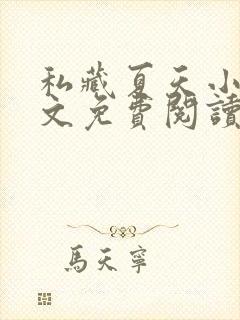 私藏夏天小
文免費閱讀
馬天寧